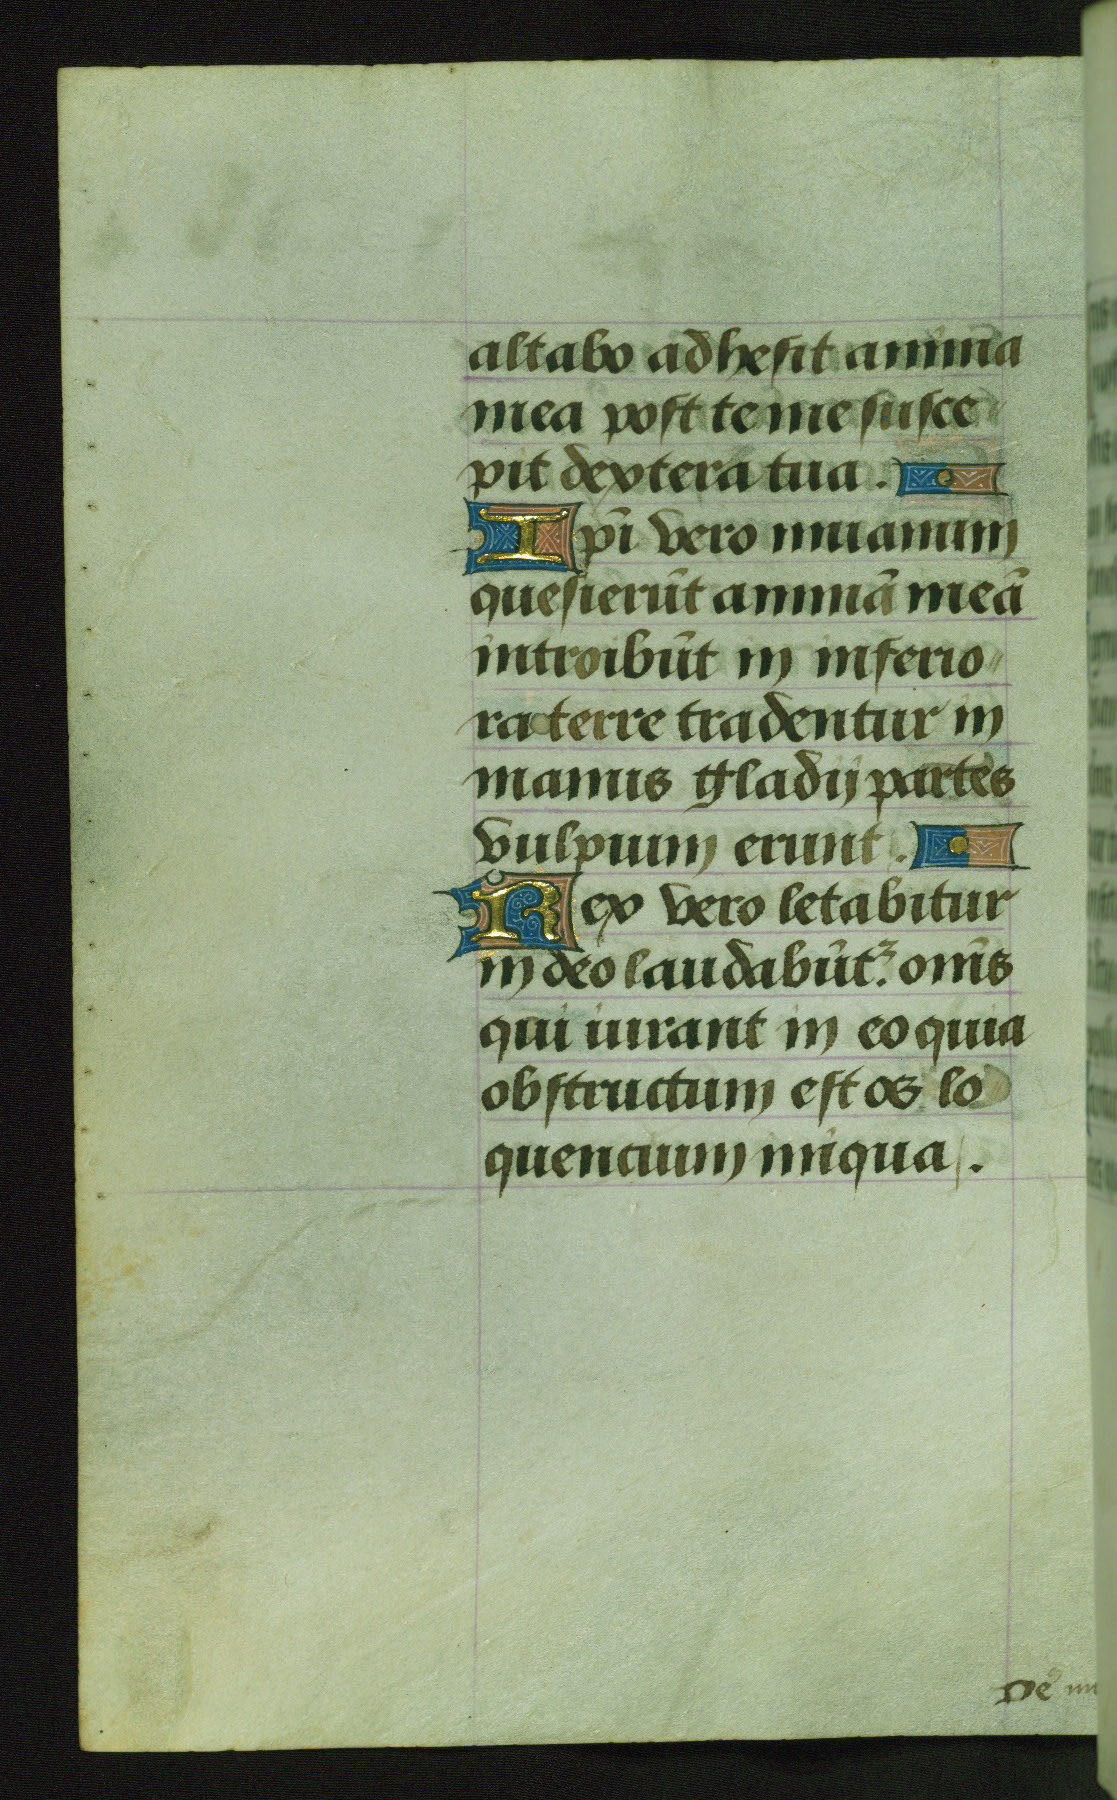 altabo adhesit anima
mea post te me susce
pit dextera tua.
Ipi̅ vero in uanum
quesieru̅t anima̅ mea̅
introibu̅t in inferio
ra terre tradentur in
manus gladij partes
vulpium erunt.
Rex vero letabitur
in deo laudabu̅t᷑ om̅s
qui iurant in eo quia
obstructum est os lo
quentium iniqua.